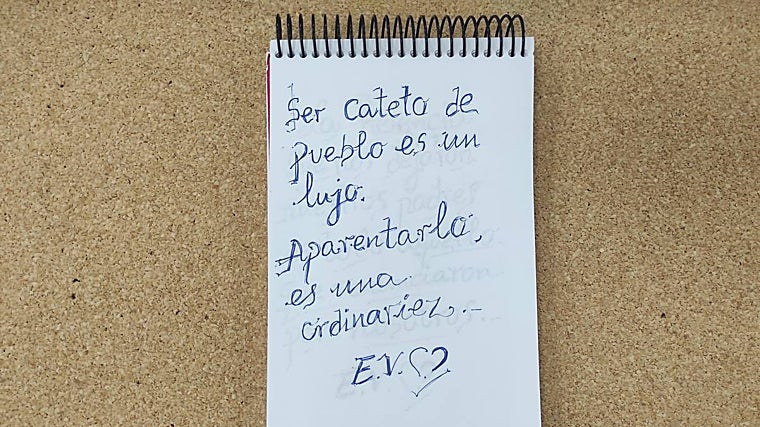 Ser cateto de
pueblo es un
lujo.
Aparentarlo,
es una
ordinariez.-
E.V.♡